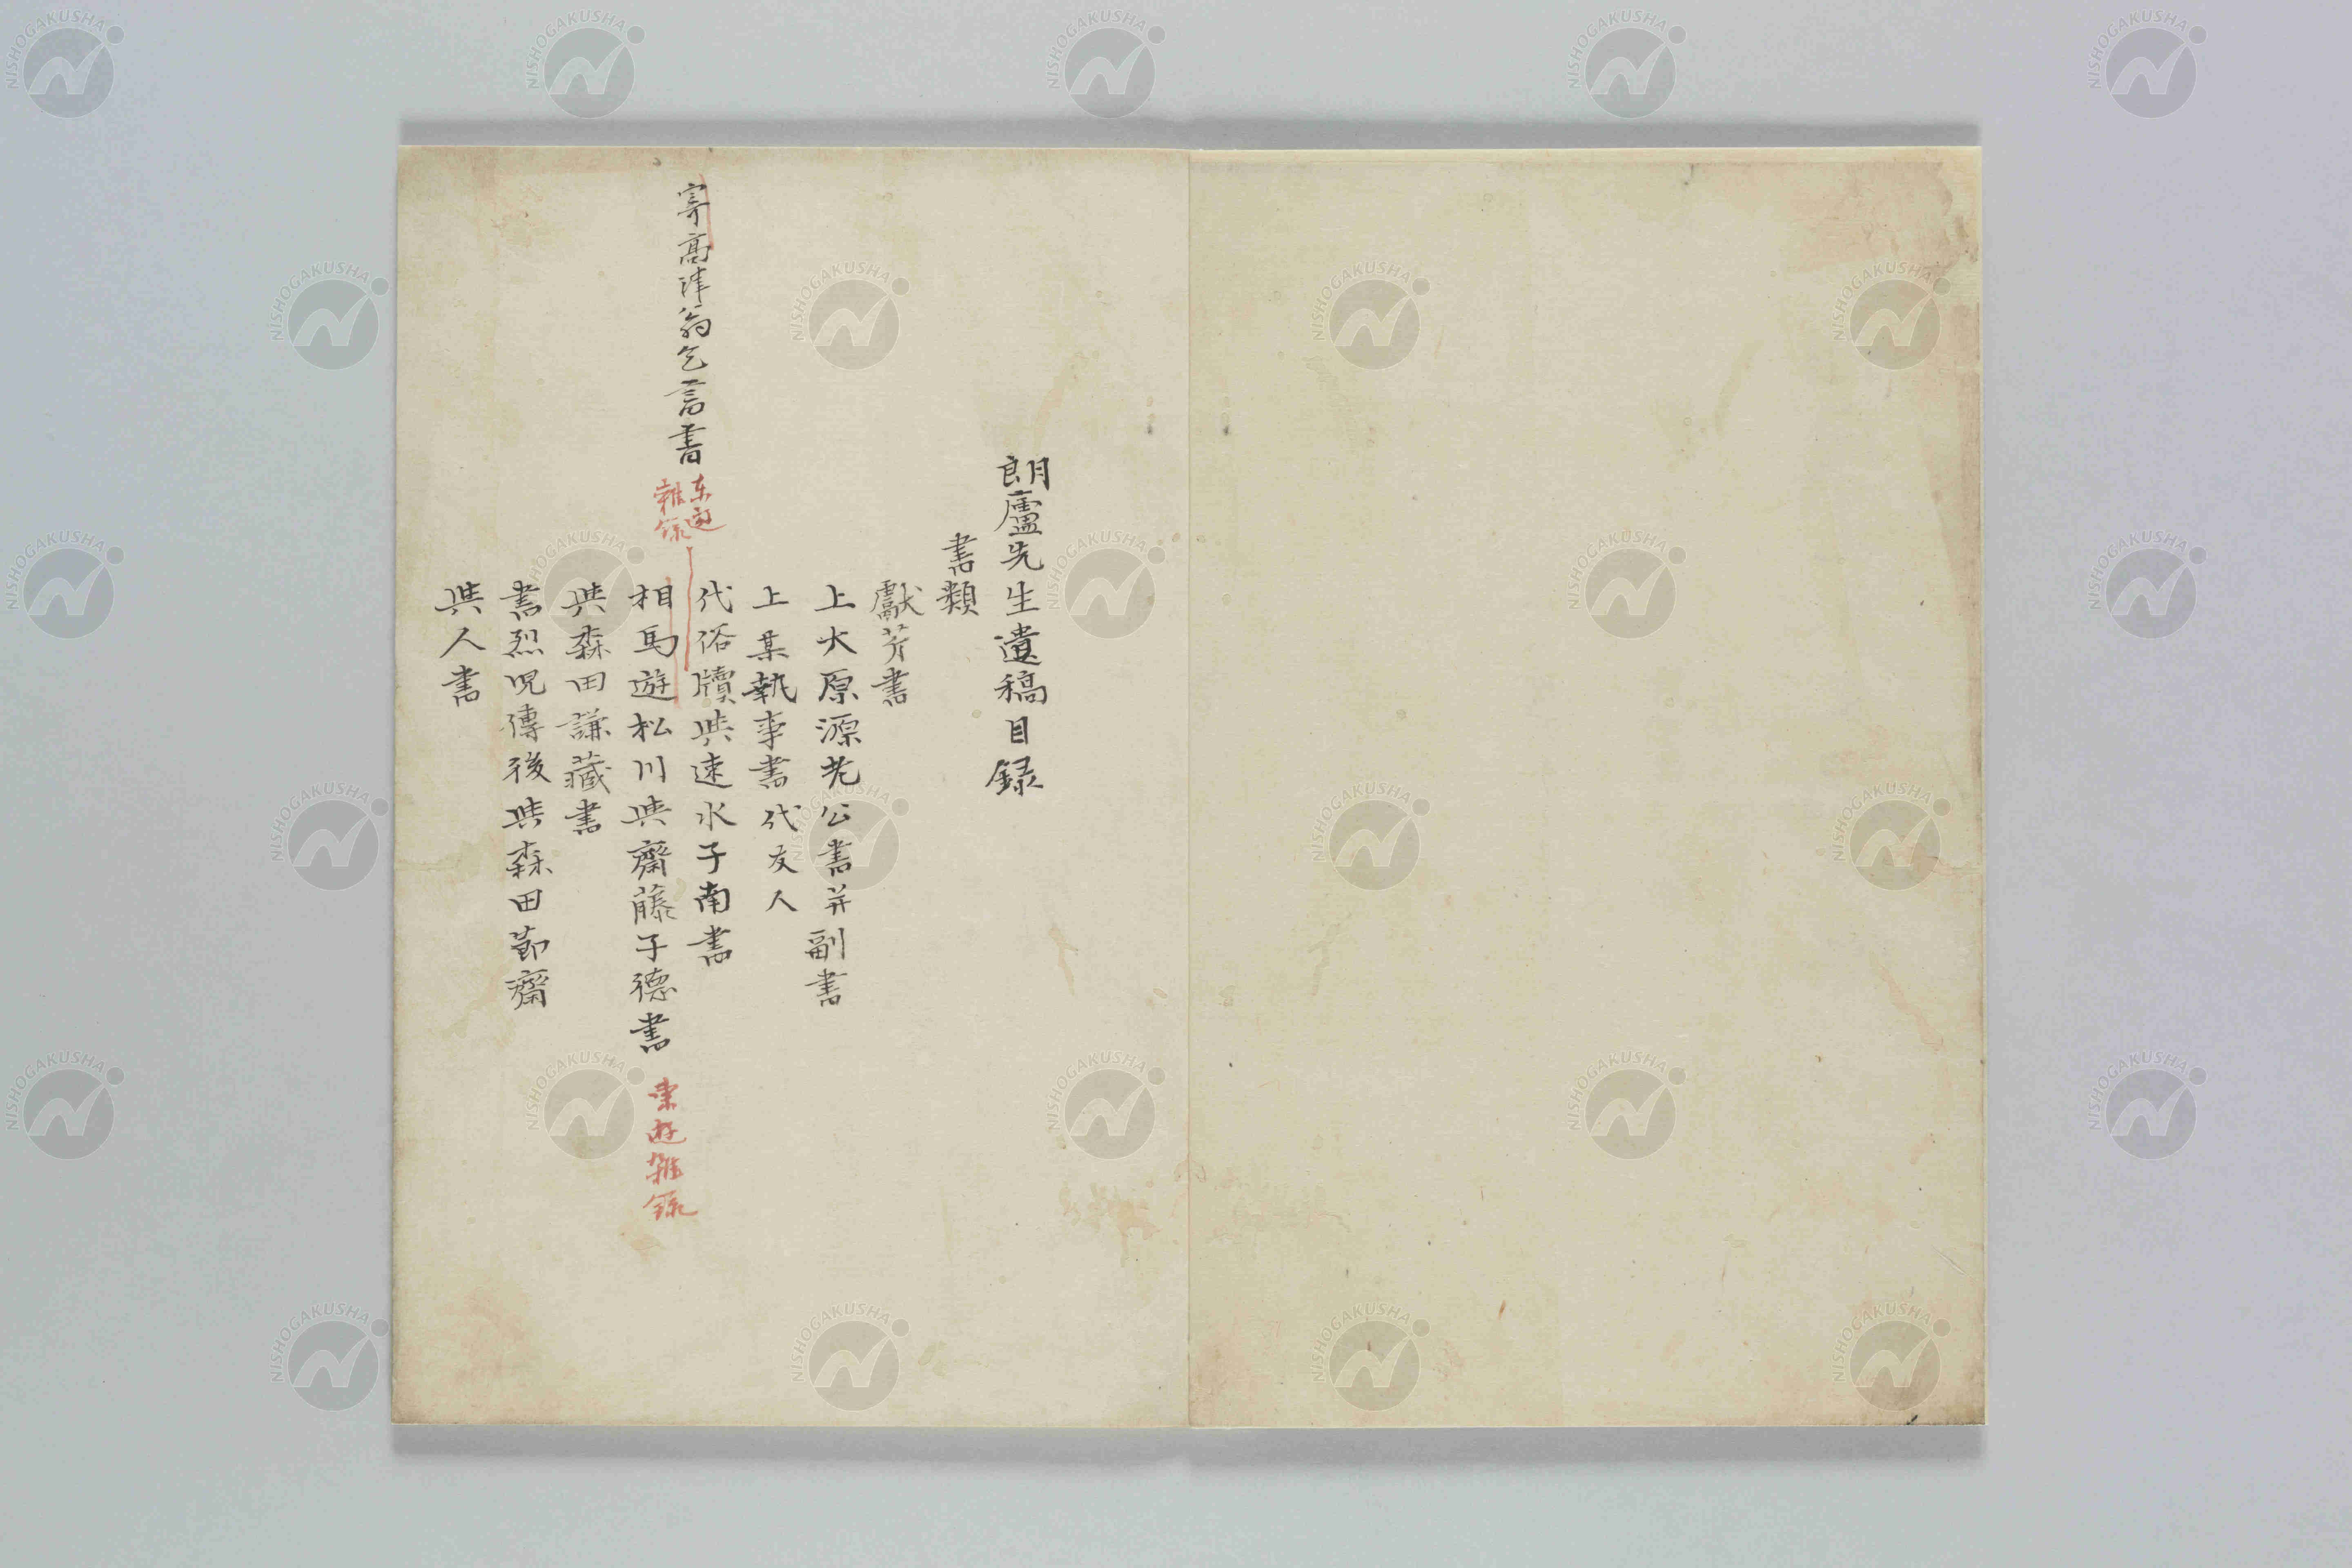 朗廬先生遺稿目録
書類
獻芹書
上大原源老公書并副書
上某執事書代友人
代俗牘與速水子南書
寄高津翁乞言書
东遊
雜録
相馬遊松川與齋藤子德書
東遊雜録
與森田謙藏書
書烈児傳後與森田節齋
與人書
NISHOGAKUSHA